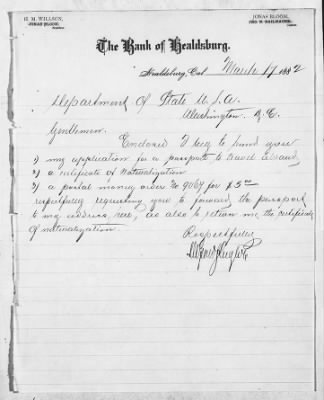 G. M. WILLSON,
JONAS BLOOM,
JONAS BLOOM,
The Bank of Healdsburg.
Healdsburg, Cal March 17 1882
Department of State U.S.A.
Washington D.C.
Gentlemen
Enclosed I beg to hand you
1) my application for a passport to travel abroad,
2) a certificate of Naturalization
3) a postal money order No 9067 for $5.00
respectfully requesting you to forward the passport
to my address, here, as also to return me the certificate
of naturalization.
Respectfully